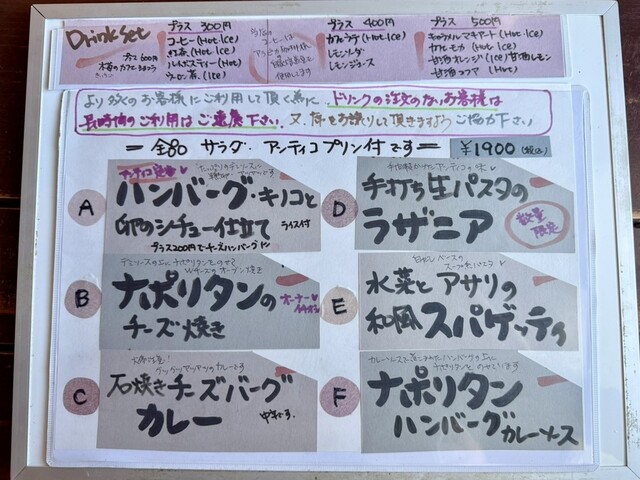 Drink Set
プラス 300円
コーヒー (Hot・Ice)
紅茶 (Hot・Ice)
ルイボスティー (Hot)
ウーロン茶 (Ice)
使用してます
プラス 400円
カフェラテ (Hot・Ice)
レモンソーダ
レモンジュース
プラス 500円
キャラメルマキアート (Hot・Ice)
カフェモカ (Hot・Ice)
甘酒オレンジ (Ice) 甘酒レモン
甘酒ココア (Hot)
プラス 600円
より多くのお客様にご利用して頂く為に ドリンクの注文のないお客様は
長時間のご利用はご遠慮下さい。又、席をお譲りして頂きますようご協力下さい
＝ 全品 サラダ・アンティコプリン付です ＝ ￥1900 (税込)
A
アンティコ定番♥
ハンバーグ・キノコと
卵のシチュー仕立て ライス付
プラス200円でチーズハンバーグに
B
ナポリタンの
チーズ焼き
オーナー
C
石焼きチーズバーグ
カレー 中辛です。
D
手打ち生パスタの
ラザニア
数量
限定
E
水菜とアサリの
和風スパゲッティ
F
ナポリタン
ハンバーグカレーソース